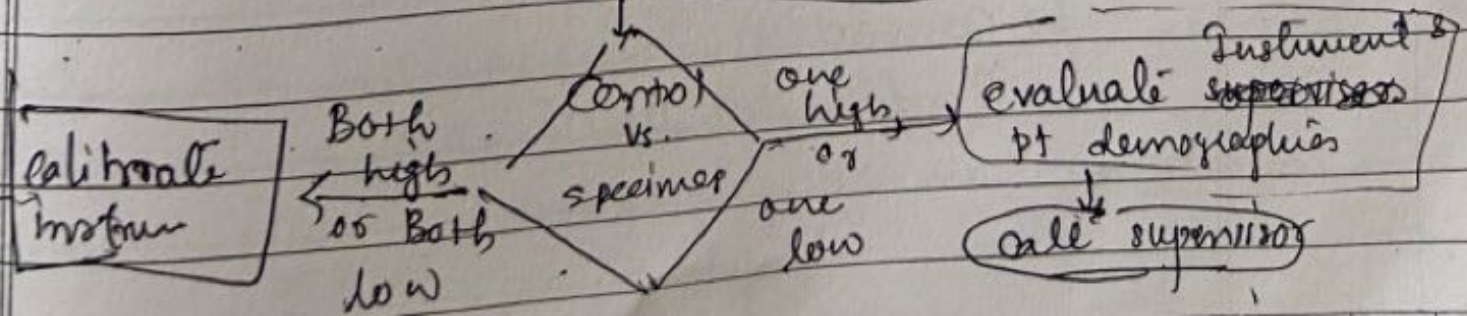 calibrate
instrum
Both
high
or Both
low
Control
vs.
specimen
one
high
or
one
low
Instrument &
evaluate
pt demographics
Call supervisor